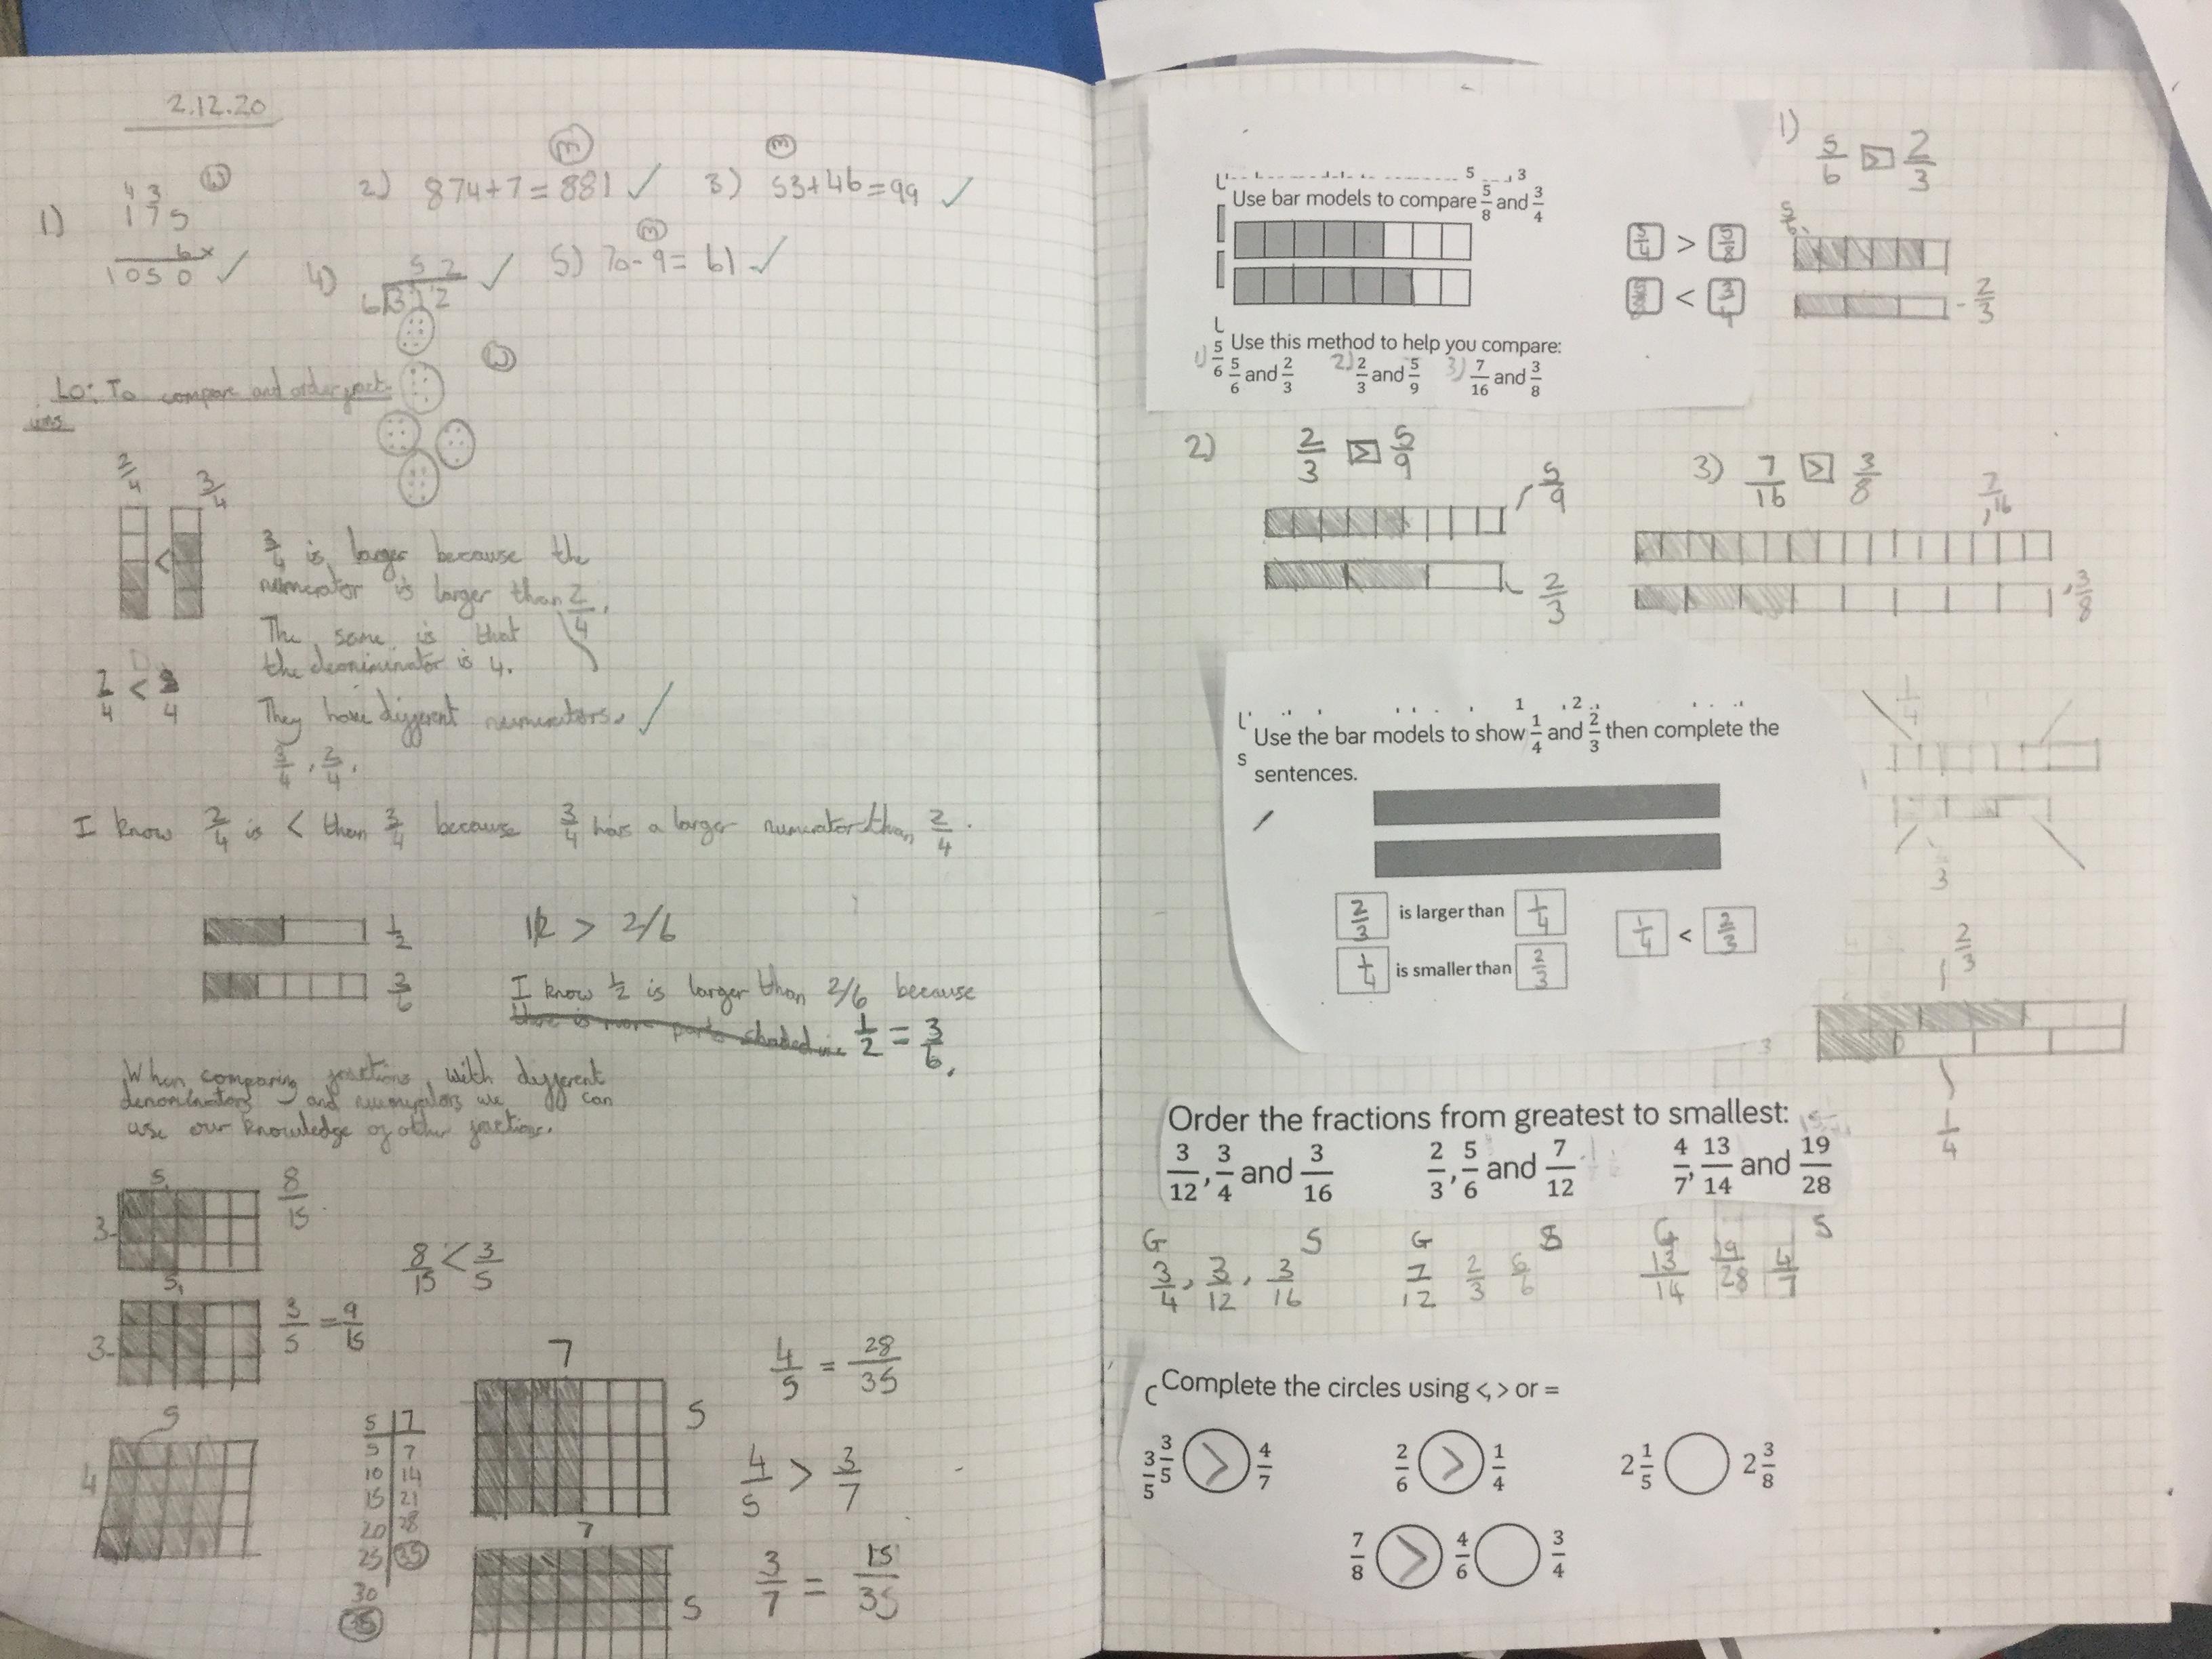 2.12.20
1) 175
6x
1050 ✓
2) 874+7=881 ✓
3) 53+46=99 ✓
4) 52
6)312 ✓
5) 70-9=61 ✓
Lo: To compare and order fract-
ions
2/4
3/4
<
3/4 is larger because the
numerator is larger than 2/4.
The same is that
the deoniminator is 4.
They have different numerators. ✓
3/4, 2/4.
2/4 < 3/4
I know 2/4 is < than 3/4 because 3/4 has a larger numerator than 2/4.
1/2
1/2 > 2/6
I know 1/2 is larger than 2/6 because
there is more parts shaded in 1/2 = 3/6.
When comparing fractions with different
denominators and numerators we can
use our knowledge of other fractions.
5
3
8/15
8/15 < 3/5
5
3
3/5 = 9/15
5
4
5 | 7
5 | 7
10 | 14
15 | 21
20 | 28
25 | 35
30
35
7
5
4/5 = 28/35
4/5 > 3/7
7
5
3/7 = 15/35
Use bar models to compare 5/8 and 3/4
3/4 > 5/8
5/8 < 3/4
Use this method to help you compare:
1) 5/6 and 2/3 2) 2/3 and 5/9 3) 7/16 and 3/8
1) 5/6 > 2/3
5/6
2/3
2) 2/3 > 5/9
5/9
2/3
3) 7/16 > 3/8
7/16
3/8
Use the bar models to show 1/4 and 2/3 then complete the
sentences.
2/3 is larger than 1/4
1/4 is smaller than 2/3
1/4 < 2/3
1/4
2/3
1/4
Order the fractions from greatest to smallest:
3/12, 3/4 and 3/16 2/3, 5/6 and 7/12 4/7, 13/14 and 19/28
G S G S G S
3/4, 3/12, 3/16 7/12 2/3 5/6 13/14 19/28 4/7
Complete the circles using <, > or =
3/5 > 4/7 2/6 > 1/4 2 1/5 2 3/8
7/8 > 4/6 3/4